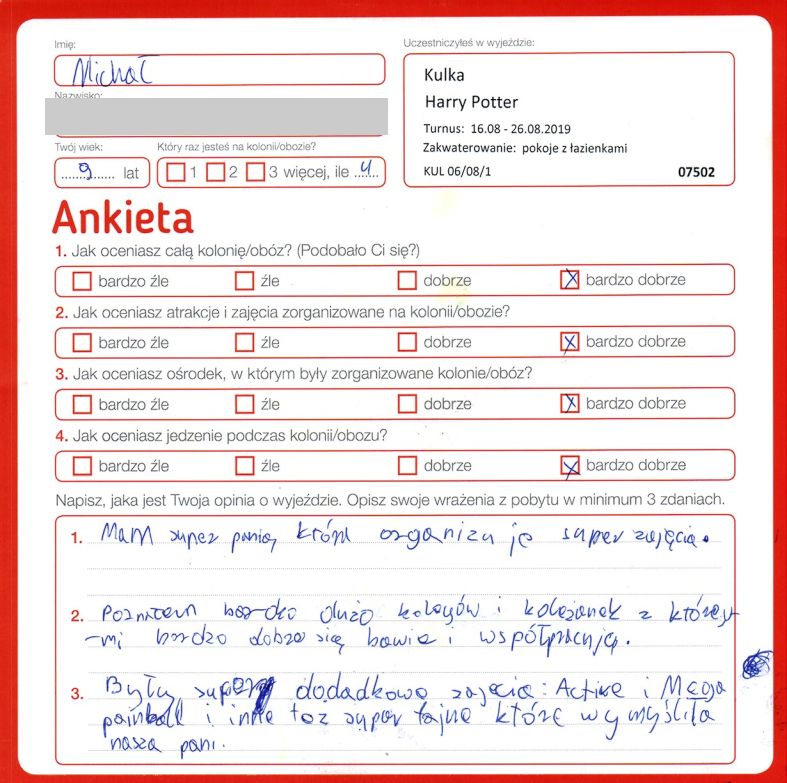 Imię:
Uczestniczyłeś w wyjeździe:
Michał
Kulka
Harry Potter
Nazwisko:
Turnus: 16.08 - 26.08.2019
Twój wiek:
Który raz jesteś na kolonii/obozie?
Zakwaterowanie: pokoje z łazienkami
9 lat
1 2 3 więcej, ile 4
KUL 06/08/1
07502
Ankieta
1. Jak oceniasz całą kolonię/obóz? (Podobało Ci się?)
bardzo źle źle dobrze bardzo dobrze
2. Jak oceniasz atrakcje i zajęcia zorganizowane na kolonii/obozie?
bardzo źle źle dobrze bardzo dobrze
3. Jak oceniasz ośrodek, w którym były zorganizowane kolonie/obóz?
bardzo źle źle dobrze bardzo dobrze
4. Jak oceniasz jedzenie podczas kolonii/obozu?
bardzo źle źle dobrze bardzo dobrze
Napisz, jaka jest Twoja opinia o wyjeździe. Opisz swoje wrażenia z pobytu w minimum 3 zdaniach.
1. Mam super panią, która organizuje super zajęcia.
2. Poznałem bardzo dużo kolegów i koleżanek z który
-mi bardzo dobrze się bawię i współpracuję.
3. Były super dodadkowe zajęcia: Active i Mega
painball i inne też super fajne które wymyśliła
nasza pani.